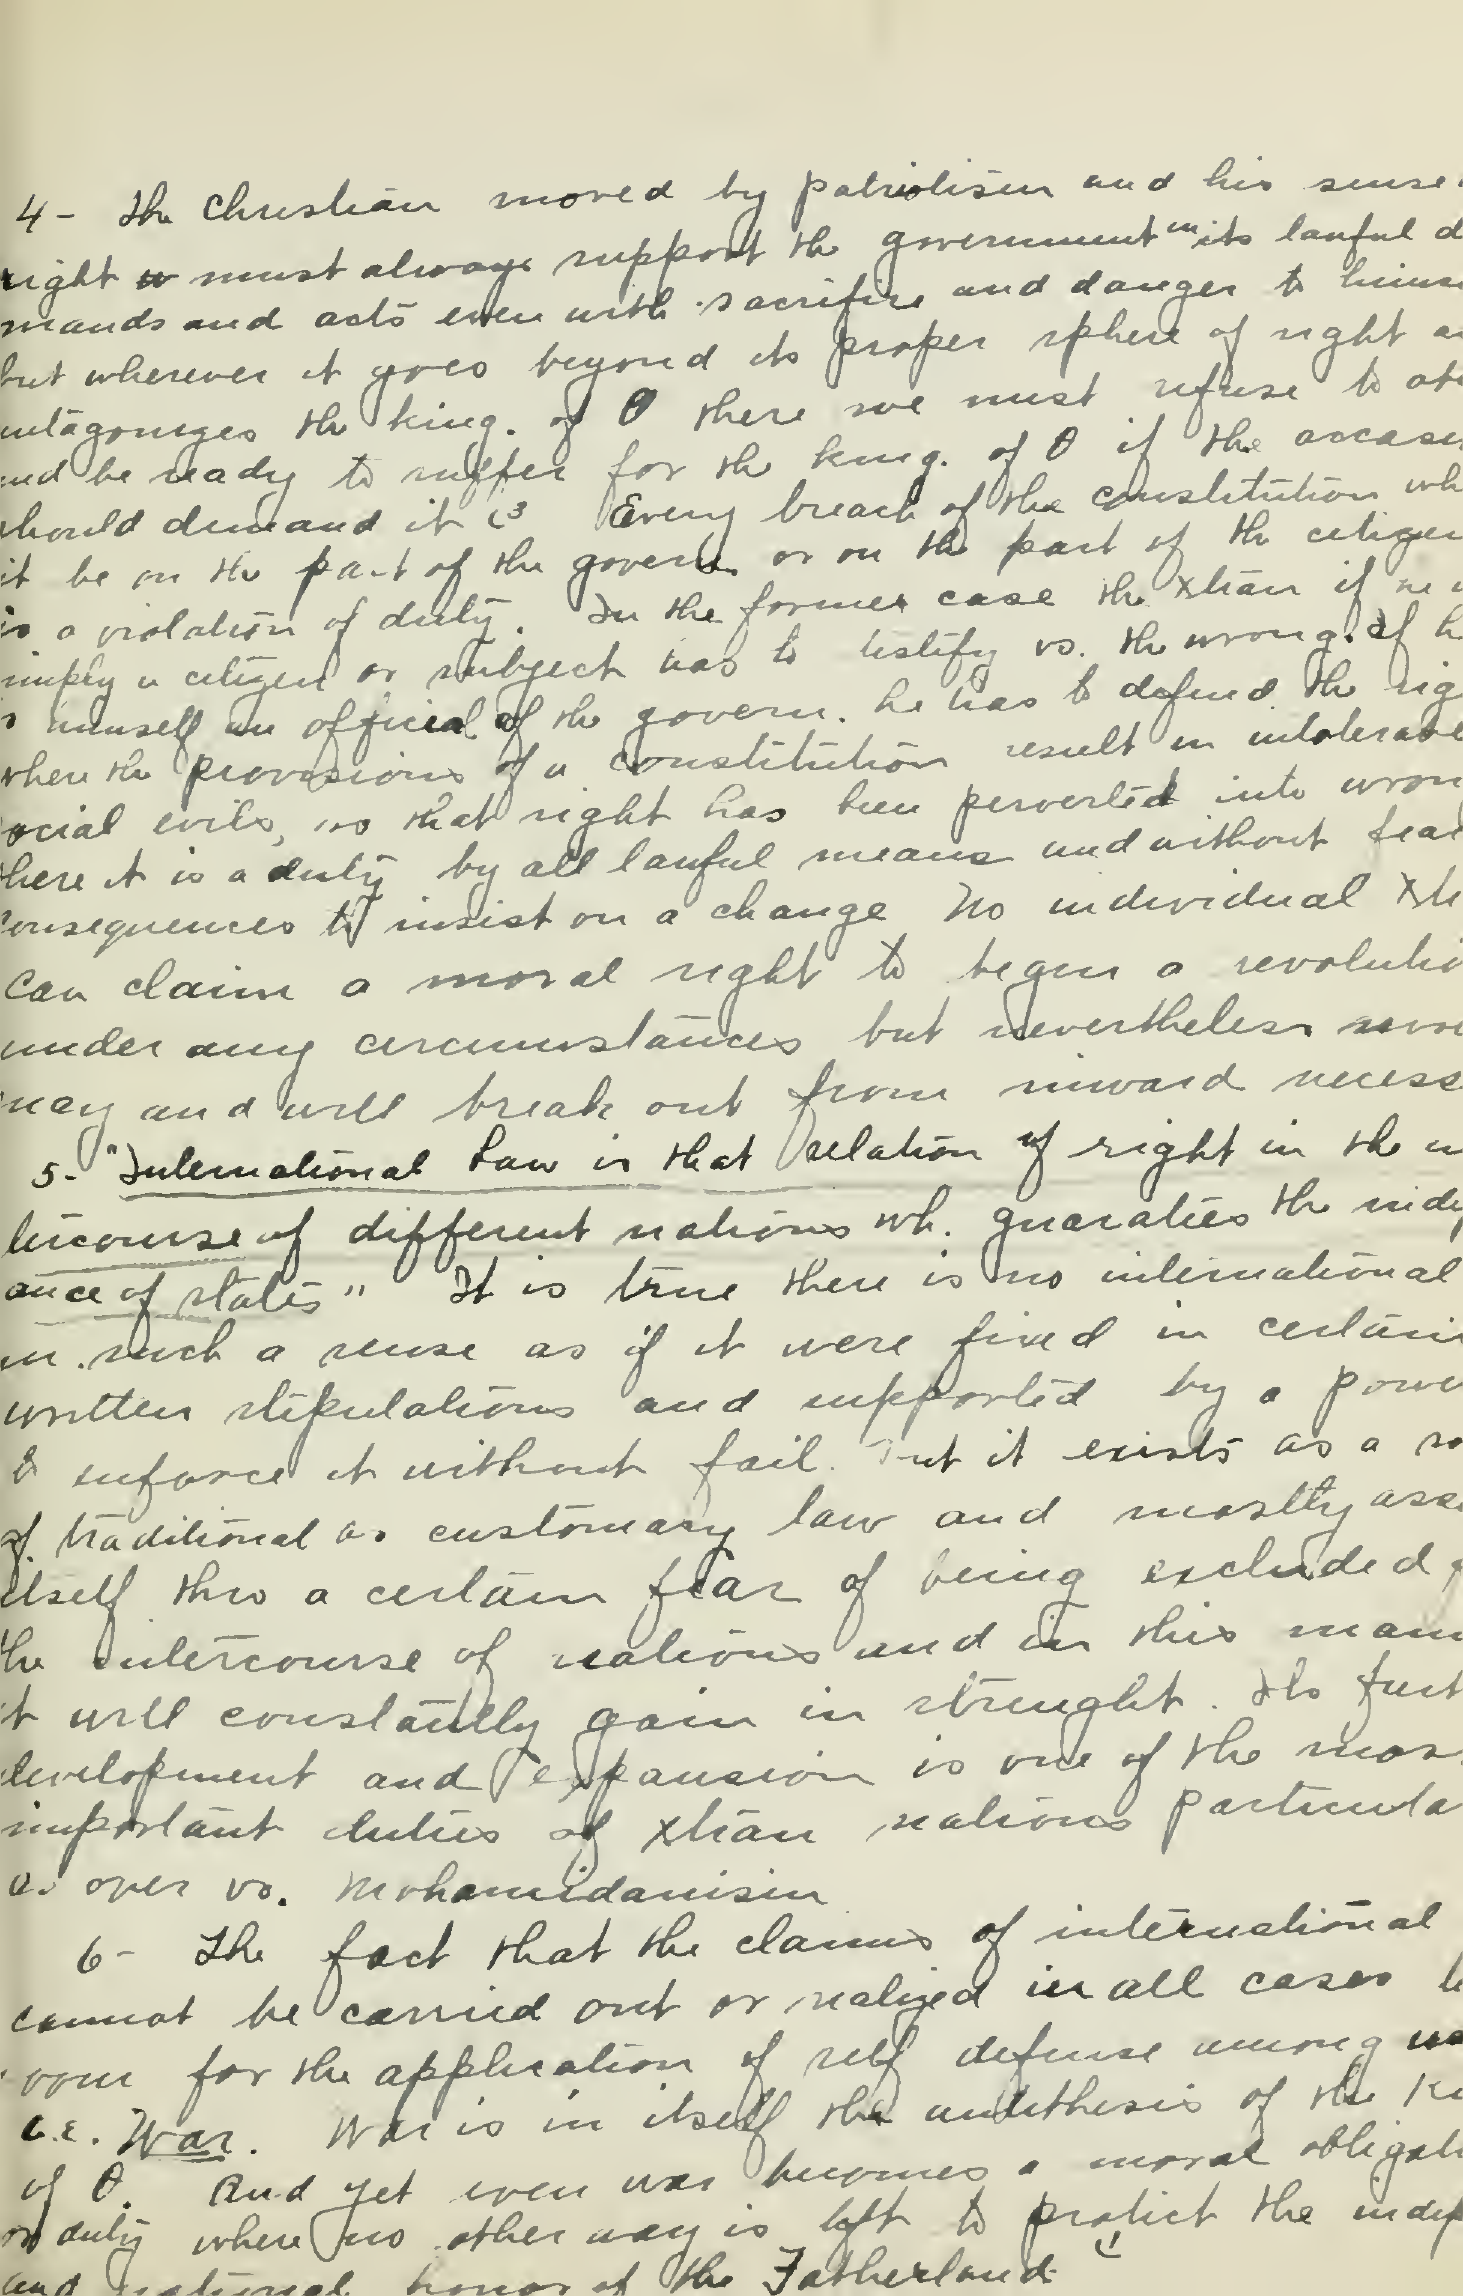 4- The Christian moved by patriotism and his sense
right must always support the government in its lawful d
mands and acts even with sacrifice and danger to himse
but wherever it goes beyond its proper sphere of right a
antagonizes the king. of θ there we must refuse to obe
and be ready to suffer for the king. of θ if the occasi
should demand it Every breach of the constitution whe
it be on the part of the govern. or on the part of the citizen
is a violation of duty. In the former case the Xtian if he i
simply a citizen or subject has to testify vs. the wrong. If h
is himself an official of the govern. he has to defend the rig
when the provisions of a constitution result in intolerable
social evils, so that right has been perverted into wron
there it is a duty by all lawful means and without fear
consequences to insist on a change No individual Xti
can claim a moral right to begin a revoluti
under any circumstances but nevertheless
may and will break out from inward necess
5- "International Law is that relation of right in the in
tercourse of different nations wh. guaraties the inde
ance of states" It is true there is no international
in such a sense as if it were fixed in certain
written stipulations and supported by a powe
to enforce it without fail. But it exists as a so
of traditional or customary law and mostly asse
itself thro a certain fear of being excluded f
the intercourse of nations and in this mann
it will constantly gain in strenght. Its furt
development and expansion is one of the mos
important duties of Xtian nations particula
as over vs. Mohamidanism
6- The fact that the claims of international
cannot be carried out or realized in all cases le
room for the application of self defense among na
i.e. War. War is in itself the antithesis of the Ki
of θ. And yet even war becomes a moral obligati
or duty where no other way is left to protict the indep
and national honor of the Fatherland